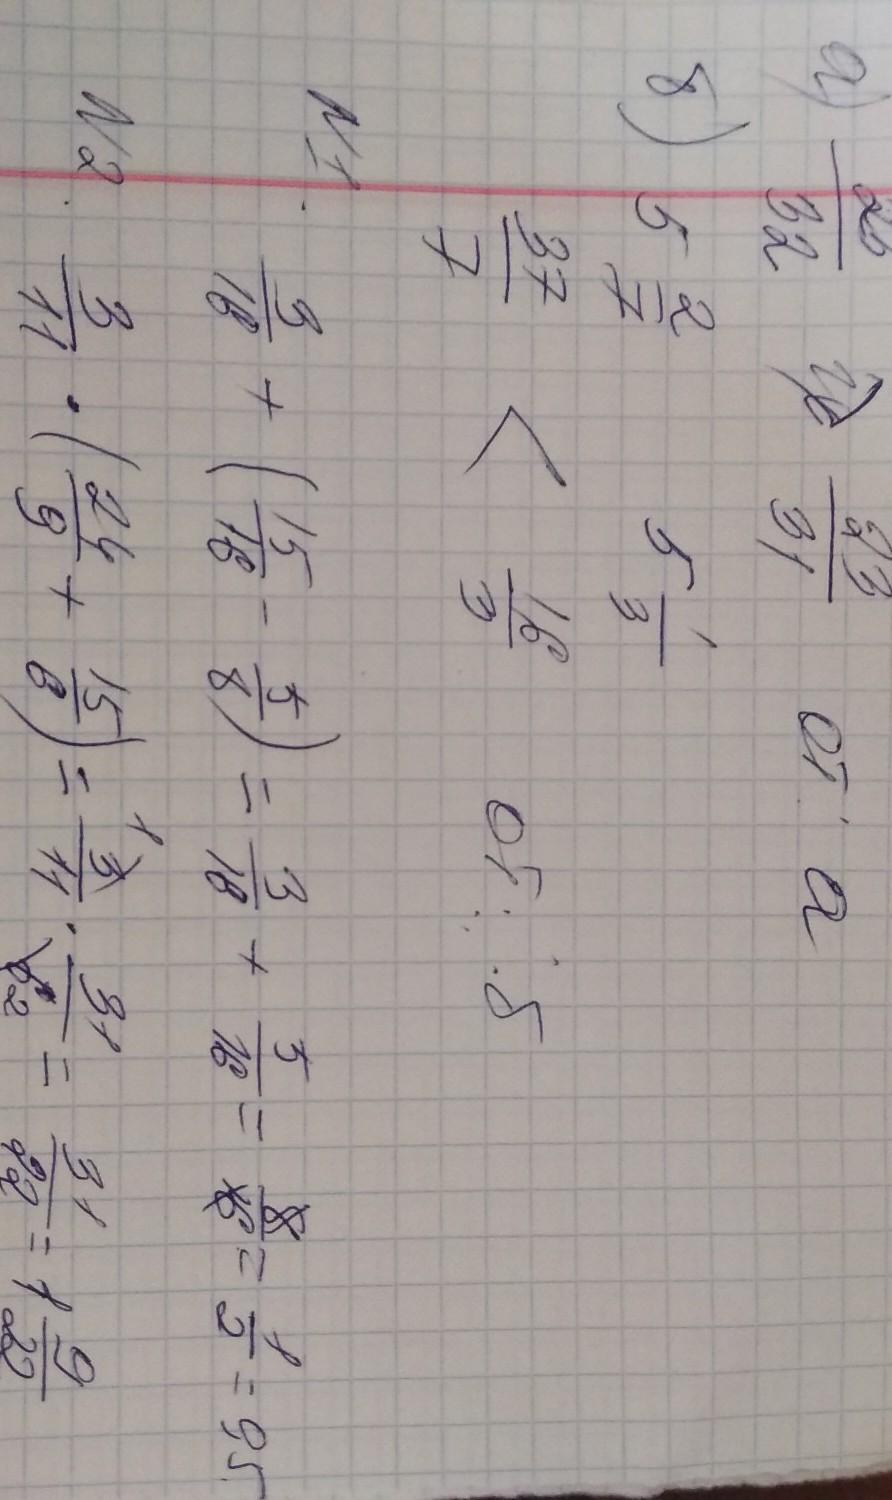 а) 20/32 23/31 от. а
б) 5 2/7 5 1/3
37/7 < 16/3 от: б
N1. 3/16 + (15/16 - 5/8) = 3/16 + 5/16 = 8/16 = 1/2 = 0,5
N2. 3/11 · (24/9 + 15/6) = 3/11 · 31/6 = 31/22 = 1 9/22